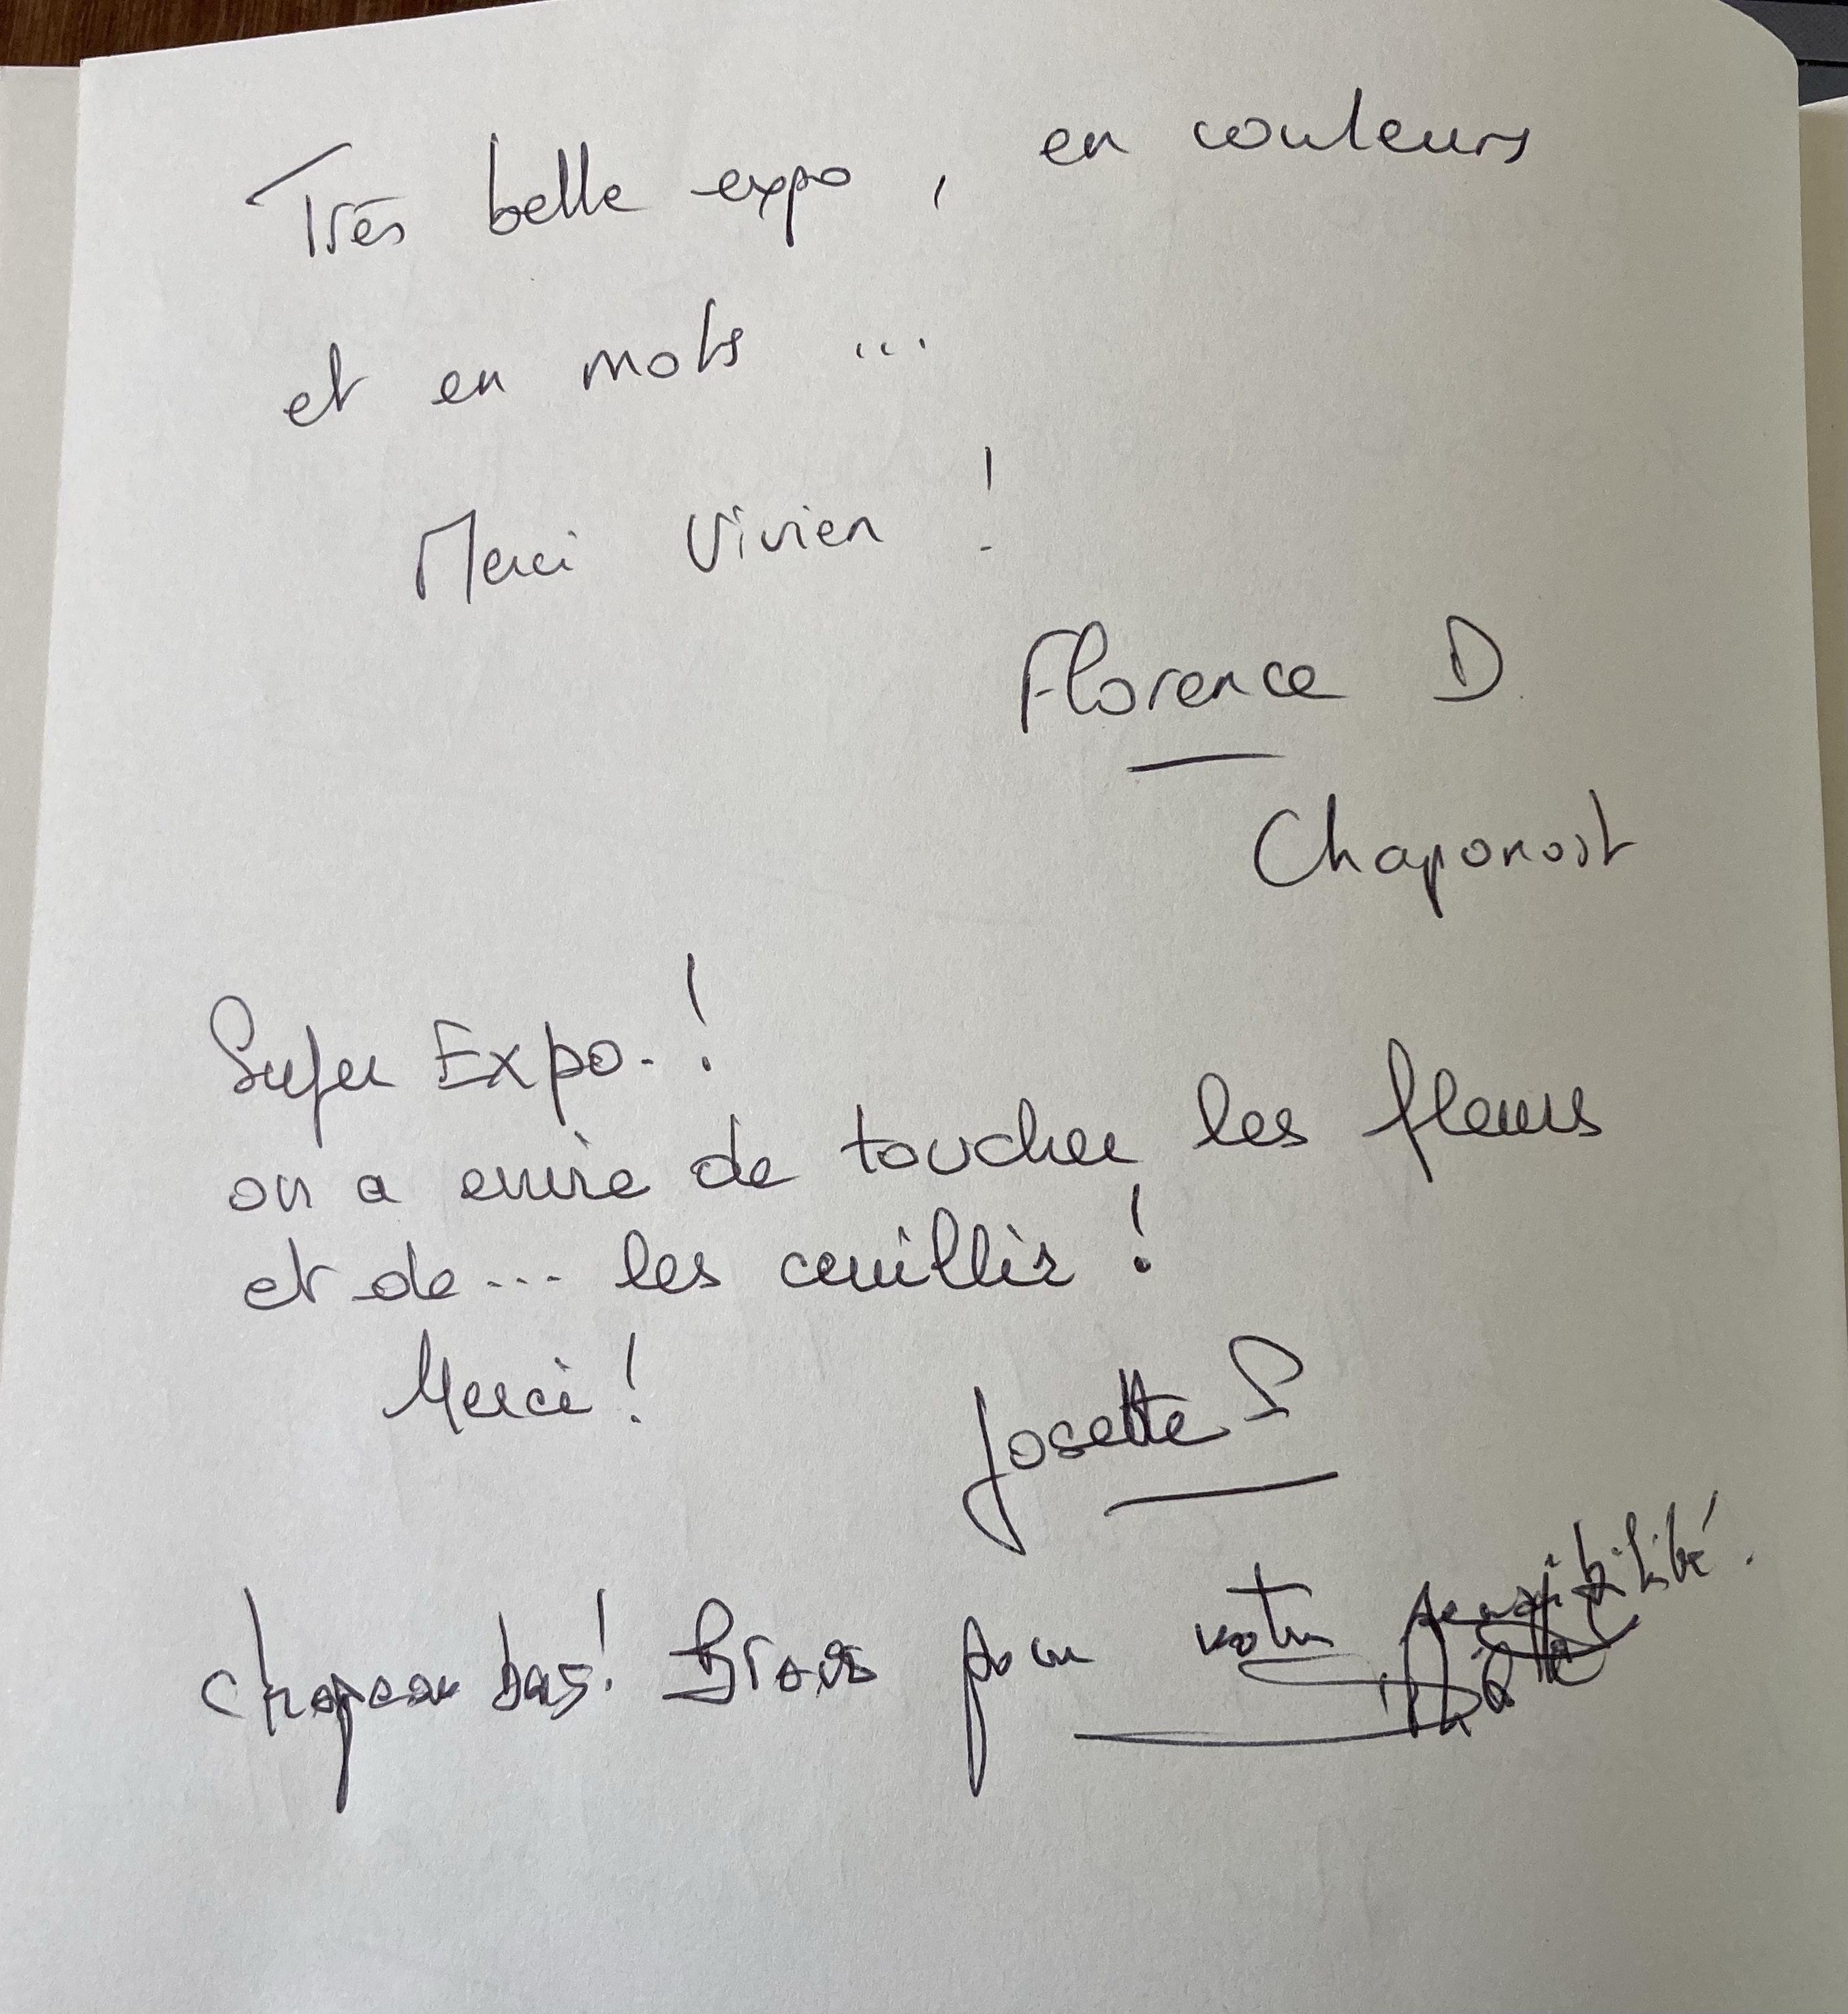 Très belle expo, en couleurs
et en mots ...
Merci Vivien !
Florence D.
Chaponost
Super Expo. !
on a envie de toucher les fleurs
et de... les ceuillir !
Merci !
Josette S
Chapeau bas! Bravo pour votre sensibilité.